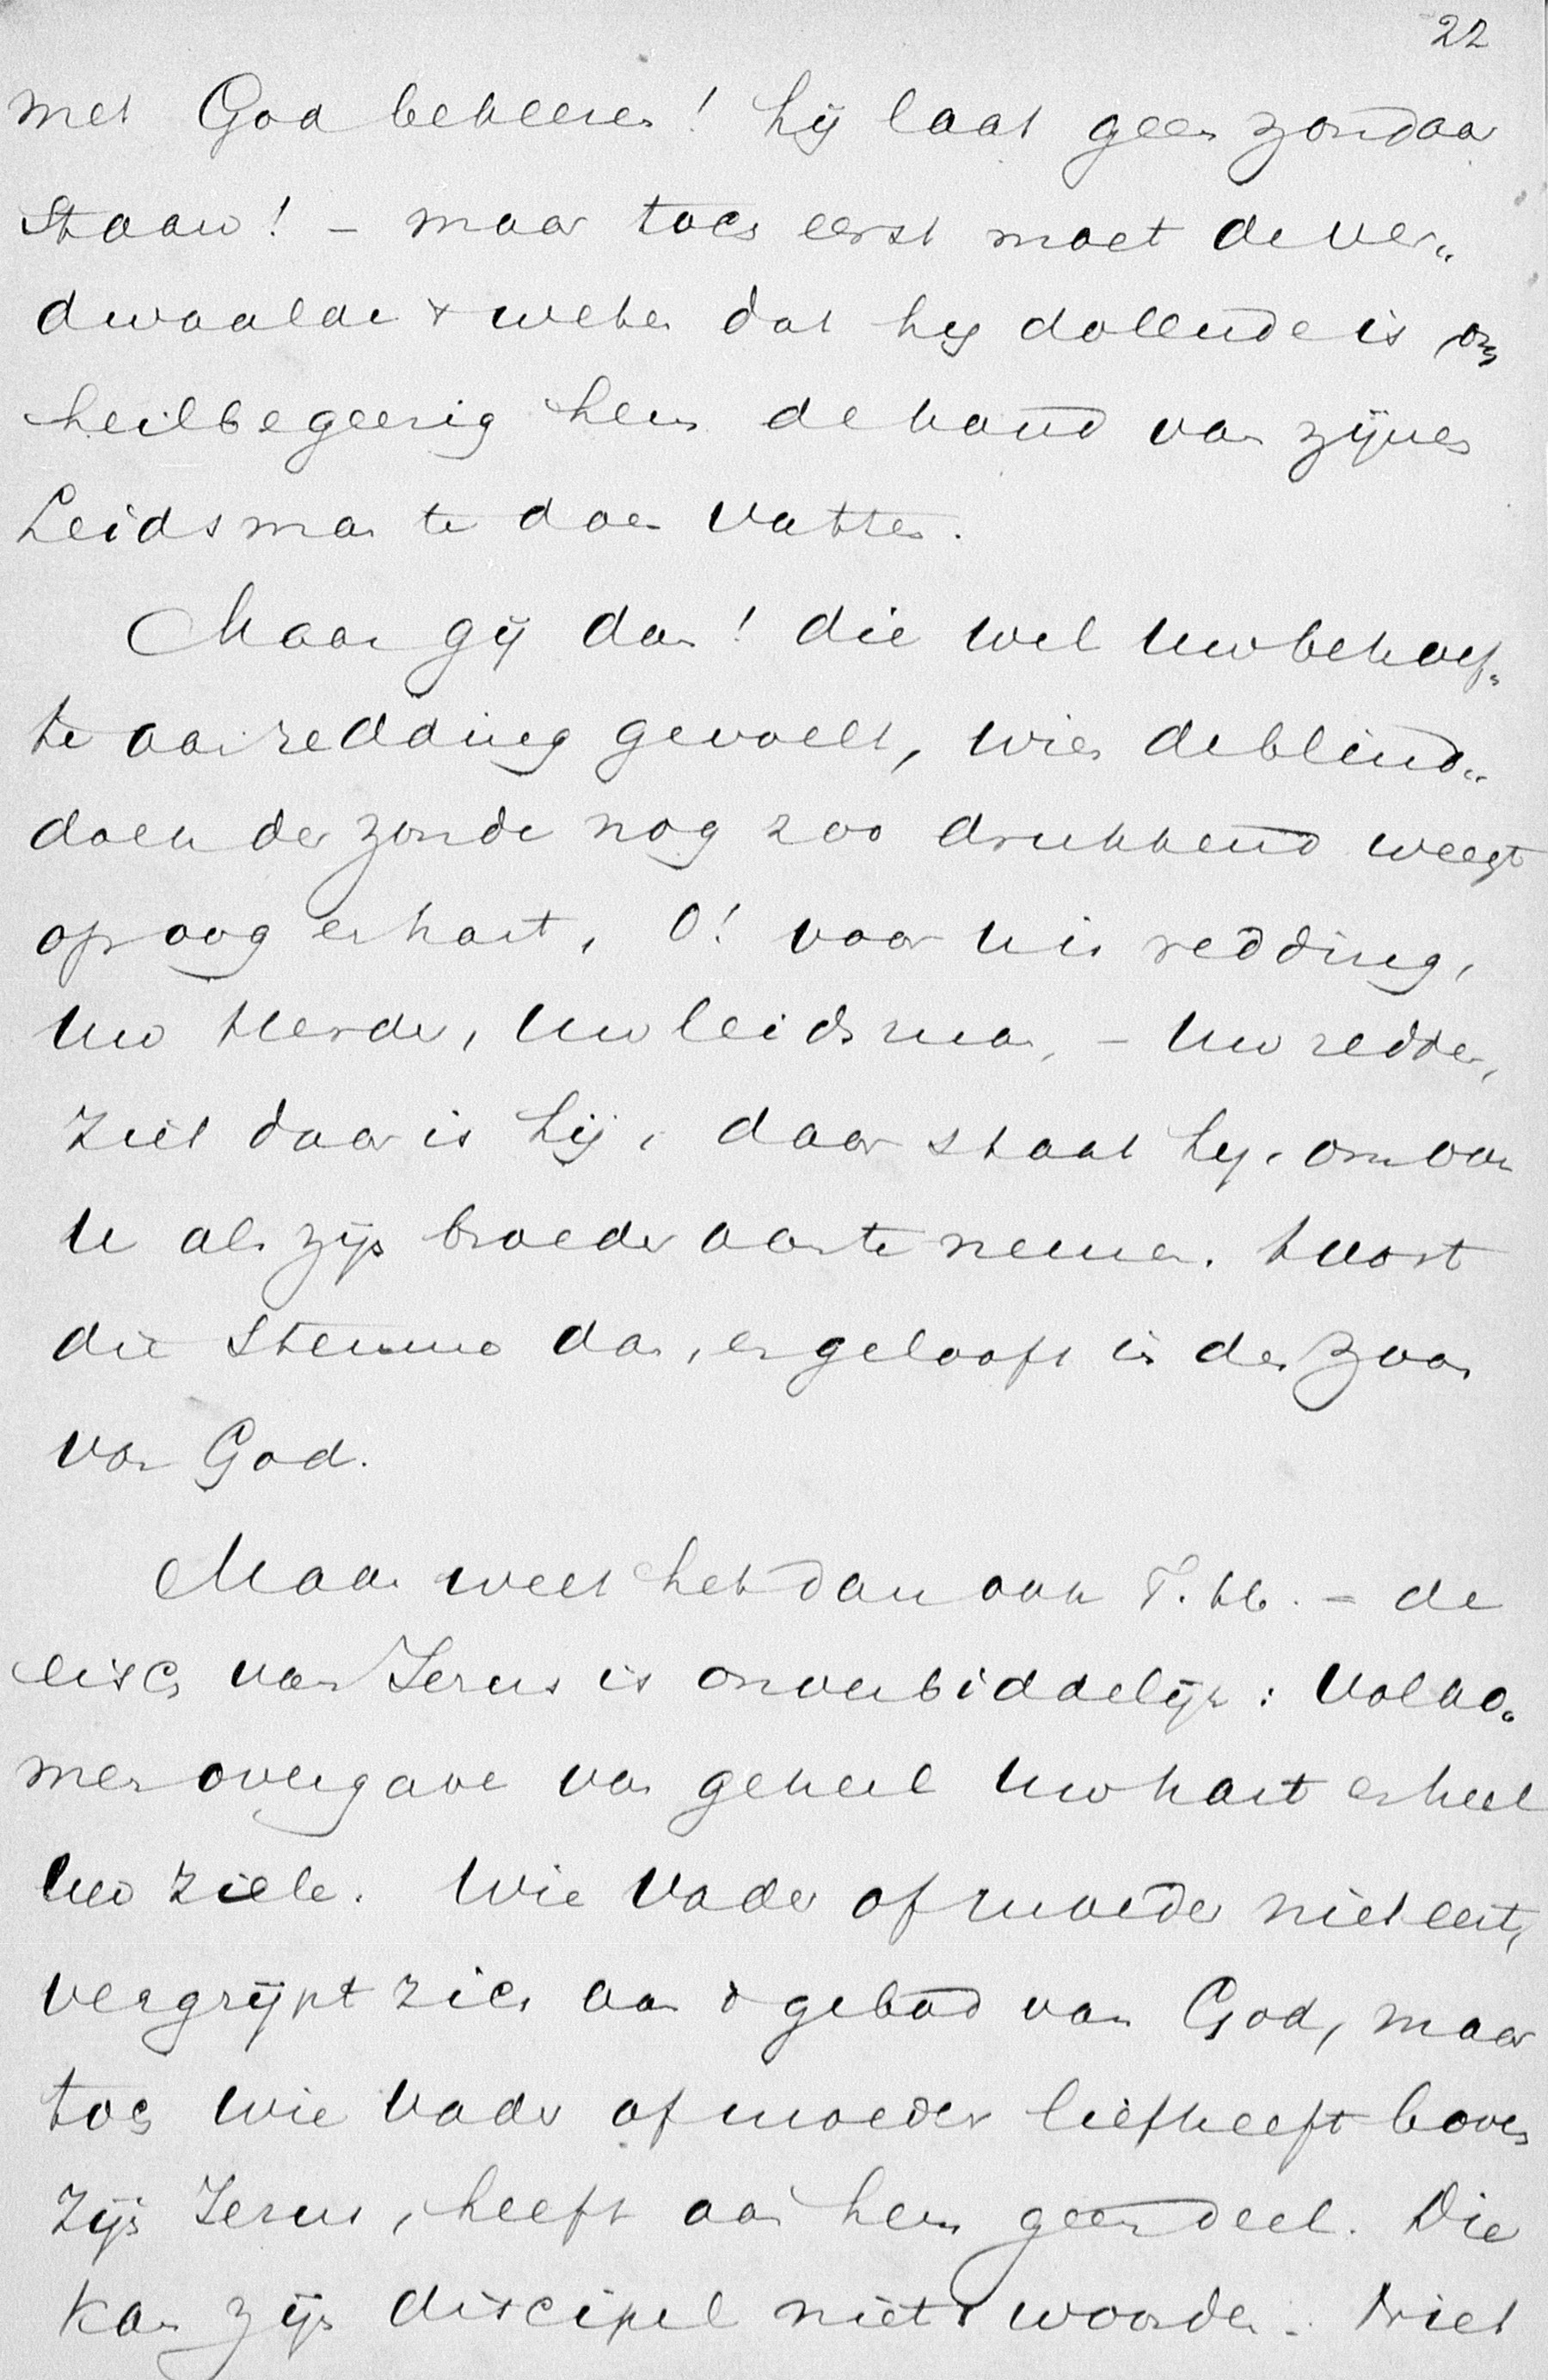 22
met God bekeeren! hij laat geen zondaar
staan! – maar toch eerst moet de ver„
dwaalde + weten dat hij dolende is om
heilbegeerig hem de hand van zijnen
Leidsman te doen vatten.
Maar gij dan! die wel uw behoef„
te aan redding gevoelt, wien de blind„
doek der zonde nog zoo drukkend weegt
op oog en hart, O! voor u is redding,
uw Herder, uw leidsman, – uw redder,
ziet daar is hij, daar staat hij, om van
u als zijn broeder aan te nemen. hoort
die stemme dan, en gelooft in den Zoon
van God.
Maar weet het dan ook T. H. – de
eisch van Jezus is onverbiddelijk: volko„
men overgave van geheel uw hart en heel
uw ziele. Wie vader of moeder niet eert,
vergrijpt zich aan 't gebod van God, maar
toch wie vader of moeder liefheeft boven
zijn Jezus, heeft aan hem geen deel. Die
kan zijn discipel niet woorden. Niet